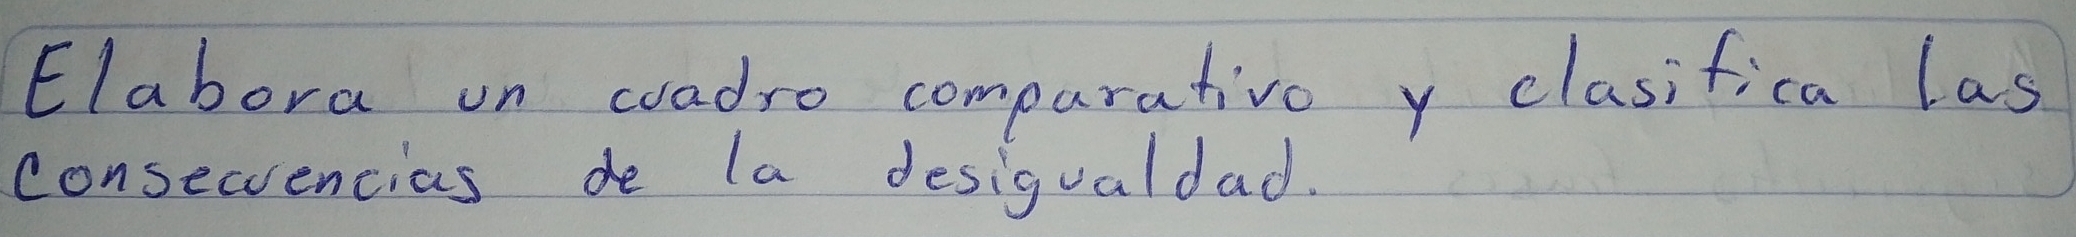 Elabora un cuadro comparativo y clasifica las
consecuencias de la desigualdad.